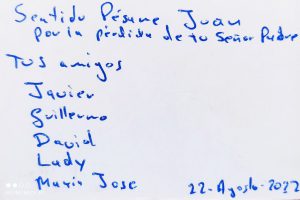 Sentido Pésame Juan
por la pérdida de tu Señor Padre
Tus amigos
Javier
Guillermo
David
Lady
Maria Jose
22-Agosto-2022